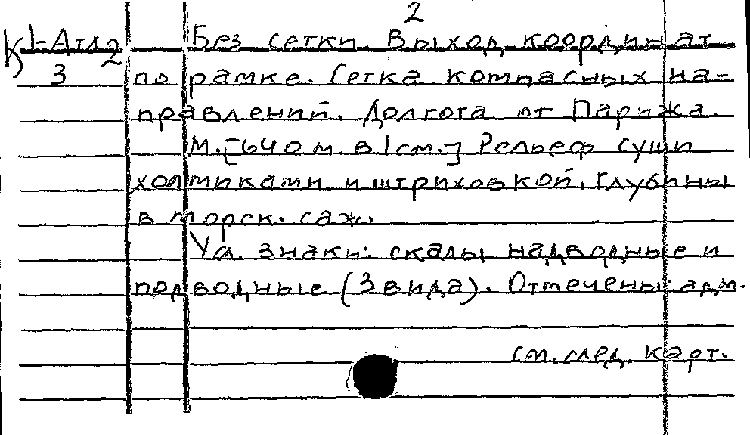 2
К 1-Атл2 Без сетки. Выход координат
3 по рамке. Сетка компасных на-
правлений. Долгота от Парижа.
М. [640 м. в 1 см.] Рельеф суши
холмиками и штриховкой, глубины
в морск. саж.
Усл. знаки: скалы надводные и
подводные (3 вида). Отмечены адм.
см. след. карт.